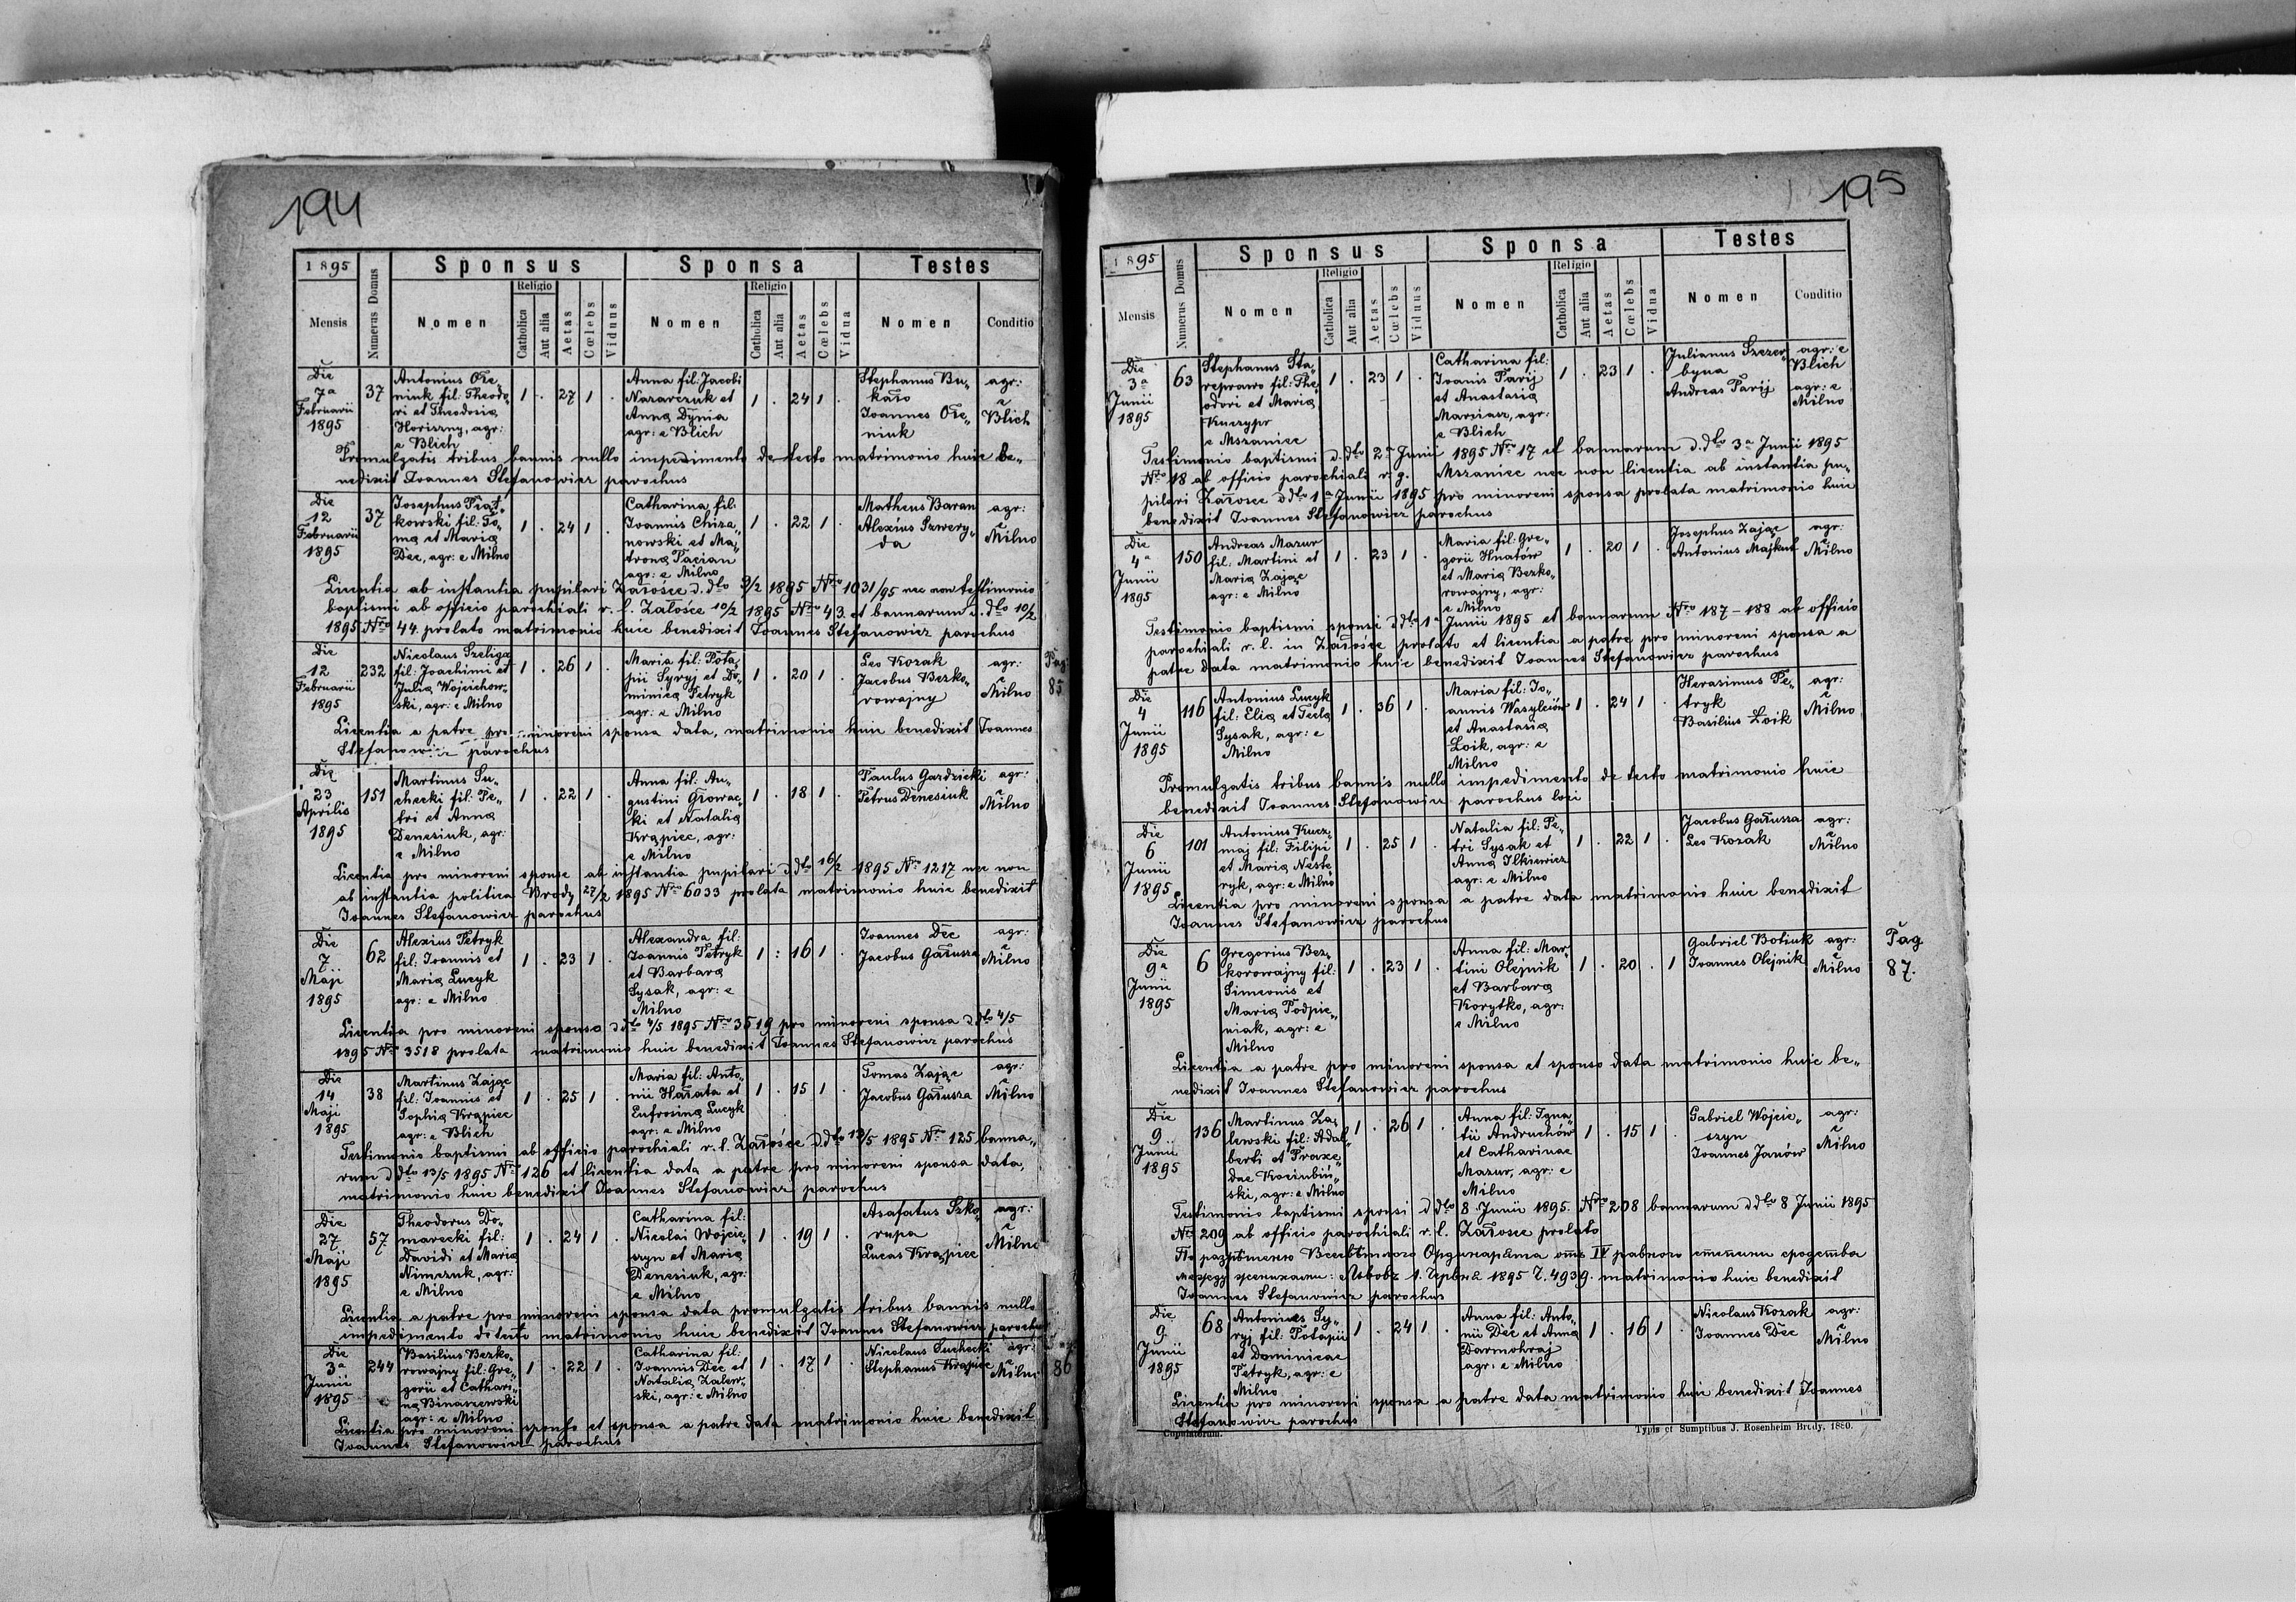 194
1895
Mensis
Numerus Domus
Sponsus
Nomen
Religio
Catholica
Aut alia
Aetas
Cœlebs
Viduus
Sponsa
Nomen
Religio
Catholica
Aut alia
Aetas
Cœlebs
Vidua
Testes
Nomen
Conditio
Die
7ª
Februarii
1895
37
Antonius Ole„
niuk fil: Theodo„
ri et Theodosia
Horiszny, agr:
e Blich
1 . 27 1 .
Anna fil: Jacobi
Nazarczuk et
Anna Dynia
agr: e Blich
1 . 24 1 .
Stephanus Bu„
kało
Joannes Ole„
niuk
agr:
e
Blich
Promulgatis tribus bannis nullo impedimento detecto matrimonio huic be„
nedixit Joannes Stefanowicz parochus
Die
12
Februarii
1895
37
Josephus Piąt„
kowski fil: To„
ma et Maria
Dec, agr: e Milno
1 . 24 1 .
Catharina fil:
Joannis Chiza„
nowski et Ma„
trona Pacian
agr: e Milno
1 . 22 1 .
Matheus Baran
Alexius Szwery„
da
agr:
e
Milno
Licentia ab instantia pupilari Załośce d. dto 9/2 1895 Nro 1031/95 nec non testimonio
baptismi ab officio parochiali r. l. Załośce 10/2 1895 Nro 43. et bannarum d. dto 10/2
1895 Nro 44. prolato matrimonio huic benedixit Joannes Stefanowicz parochus
Die
12
Februarii
1895
232
Nicolaus Szeliga
fil: Joachimi et
Julia Wojcichow„
ski, agr: e Milno
1 . 26 1 .
Maria fil: Pota„
pii Syryj et Do„
minica Petryk
agr: e Milno
1 . 20 1 .
Leo Kozak
Jacobus Bezko„
rowajny
agr:
e
Milno
Pag
85
Licentia a patre pro minoreni sponsa data, matrimonio huic benedixit Joannes
Stefanowicz parochus
Die
23
Aprilis
1895
151
Martinus Su„
checki fil: Pe„
tri et Anna
Denesiuk, agr:
e Milno
1 . 22 1 .
Anna fil: Au„
gustini Głowac„
ki et Natalia
Krąpiec, agr:
e Milno
1 . 18 1 .
Paulus Gardzicki
Petrus Denesiuk
agr:
e
Milno
Licentia pro minoreni sponse ab instantia pupilari d dto 16/2 1895 Nro 1217 nec non
ab instantia politica Brody 27/2 1895 Nro 6033 prolata matrimonio huic benedixit
Joannes Stefanowicz parochus
Die
7
Maji
1895
62
Alexius Petryk
fil: Joannis et
Maria Lucyk
agr: e Milno
1 . 23 1 .
Alexandra fil:
Joannis Petryk
et Barbara
Sysak, agr: e
Milno
1 : 16 1 .
Joannes Dec
Jacobus Gałusza
agr:
e
Milno
Licentia pro minoreni sponso d dto 4/5 1895 Nro 3519 pro minoreni sponsa d dto 4/5
1895 Nro 3518 prolata matrimonio huic benedixit Joannes Stefanowicz parochus
Die
14
Maji
1895
38
Martinus Zając
fil: Joannis et
Sophia Krąpiec
agr: e Blich
1 . 25 1 .
Maria fil: Anto„
nii Hałata et
Eufrosina Lucyk
agr: e Milno
1 . 15 1 .
Tomas Zając
Jacobus Gałusza
agr:
e
Milno
Testimonio baptismi ab officio parochiali r. l. Załośce d.dto 13/5 1895 Nro 125 banna„
rum d dto 13/5 1895 Nro 126 et licentia data a patre pro minoreni sponsa data,
matrimonio huic benedixit Joannes Stefanowicz parochus
Die
27
Maji
1895
57
Theodorus Do„
marecki fil:
Dawidi et Maria
Nimczuk, agr:
e Milno
1 . 24 1 .
Catharina fil:
Nicolai Wojcie„
szyn et Maria
Denesiuk, agr:
e Milno
1 . 19 1 .
Asafatus Szko„
rupa
Lucas Krąpiec
agr:
e
Milno
Licentia a patre pro minoreni sponsa data promulgatis tribus bannis nullo
impedimento detecto matrimonio huic benedixit Joannes Stefanowicz parochus
Die
3ª
Junii
1895
244
Basilius Bezko„
rowajny fil: Gre„
gorii et Cathari„
na Binaszewski
agr: e Milno
1 . 22 1 .
Catharina fil:
Joannis Dec et
Natalia Zalew„
ski, agr: e Milno
1 . 17 1 .
Nicolaus Suchecki
Stephanus Krąpiec
agr:
e
Milno
86
Licentia pro minoreni sponso et sponsa a patre data matrimonio huic benedixit
Joannes Stefanowicz parochus
195
1895
Mensis
Numerus Domus
Sponsus
Nomen
Religio
Catholica
Aut alia
Aetas
Cœlebs
Viduus
Sponsa
Nomen
Religio
Catholica
Aut alia
Aetas
Cœlebs
Vidua
Testes
Nomen
Conditio
Die
3ª
Junii
1895
63
Stephanus Sta„
reprawo fil: The„
odori et Maria
Kuczypr
e Mszaniec
1 . 23 1 .
Catharina fil:
Joanis Parij
et Anastasia
Marciasz, agr:
e Blich
1 . 23 1 .
Julianus Szczer„
byna
Andreas Parij
agr: e
Blich
agr: e
Milno
Testimonio baptismi d. dto 2ª Junii 1895 Nro 17 et bannarum d dto 3ª Junii 1895
Nro 18 ab officio parochiali r. g. Mszaniec nec non licentia ab instantia pu„
pilari Załośce d dto 1ª Junii 1895 pro minoreni sponsa prolata matrimonio huic
benedixit Joannes Stefanowicz parochus
Die
4ª
Junii
1895
150
Andreas Mazur
fil: Martini et
Maria Zając
agr: e Milno
1 . 23 1 .
Maria fil: Gre„
gorii Hnatów
et Maria Bezko„
rowajny, agr:
e Milno
1 . 20 1 .
Josephus Zając
Antonius Majkut
agr:
e
Milno
Testimonio baptismi sponsi d dto 1ª Junii 1895 et bannarum Nro 187-188 ab officio
parochiali r. l. in Załośce prolato et licentia a patre pro minoreni sponsa a
patre data matrimonio huic benedixit Joannes Stefanowicz parochus
Die
4
Junii
1895
116
Antonius Lucyk
fil: Elia et Tecla
Sysak, agr: e
Milno
1 . 36 1 .
Maria fil: Jo„
annis Wasylciów
et Anastasia
Łoik, agr: e
Milno
1 . 24 1 .
Herasimus Pe„
tryk
Basilius Łoik
agr:
e
Milno
Promulgatis tribus bannis nullo impedimento detecto matrimonio huic
benedixit Joannes Stefanowicz parochus loci
Die
6
Junii
1895
101
Antonius Kucz„
maj fil: Filipi
et Maria Neste„
ryk, agr: e Milno
1 . 25 1 .
Natalia fil: Pe„
tri Sysak et
Anna Ilkiewicz
agr: e Milno
1 . 22 1 .
Jacobus Gałusza
Leo Kozak
agr:
e
Milno
Licentia pro minoreni sponsa a patre data matrimonio huic benedixit
Joannes Stefanowicz parochus
Die
9ª
Junii
1895
6
Gregorius Bez„
korowajny fil:
Simeonis et
Maria Podpie„
niak, agr: e
Milno
1 . 23 1 .
Anna fil: Mar„
tini Olejnik
et Barbara
Korytko, agr:
e Milno
1 . 20 . 1
Gabriel Botiuk
Joannes Olejnik
agr:
e
Milno
Pag
87.
Licentia a patre pro minoreni sponsa et sponso data matrimonio huic be„
nedixit Joannes Stefanowicz parochus
Die
9
Junii
1895
136
Martinus Za„
lewski fil: Adal„
berti et Praxe„
dae Kociubiń„
ski, agr: e Milno
1 . 26 1 .
Anna fil: Igna„
tii Andruchów
et Catharinae
Mazur, agr: e
Milno
1 . 15 1 .
Gabriel Wojcie„
szyn
Joannes Janów
agr:
e
Milno
Testimonio baptismi sponsi d dto 8 Junii 1895. Nro 208 bannarum d dto 8 Junii 1895
Nro 209 ab officio parochiali r. l. Załosce prolato
По разрѣшенію Всесвѣтлого Ординаріята отъ IV равного степени сродства
межеду женихами: Львовъ 1. Червня 1895 Ч. 4939. matrimonio huic benedixit
Joannes Stefanowicz parochus
Die
9
Junii
1895
68
Antonius Sy„
ryj fil: Potapii
et Dominicae
Petryk, agr: e
Milno
1 . 24 1 .
Anna fil: Anto„
nii Dec et Anna
Darmohraj
agr: e Milno
1 . 16 1 .
Nicolaus Kozak
Joannes Dec
agr:
e
Milno
Licentia pro minoreni sponsa a patre data matrimonio huic benedixit Joannes
Stefanowicz parochus
Copulatorum.
Typis et Sumptibus J. Rosenheim Brody, 1880.